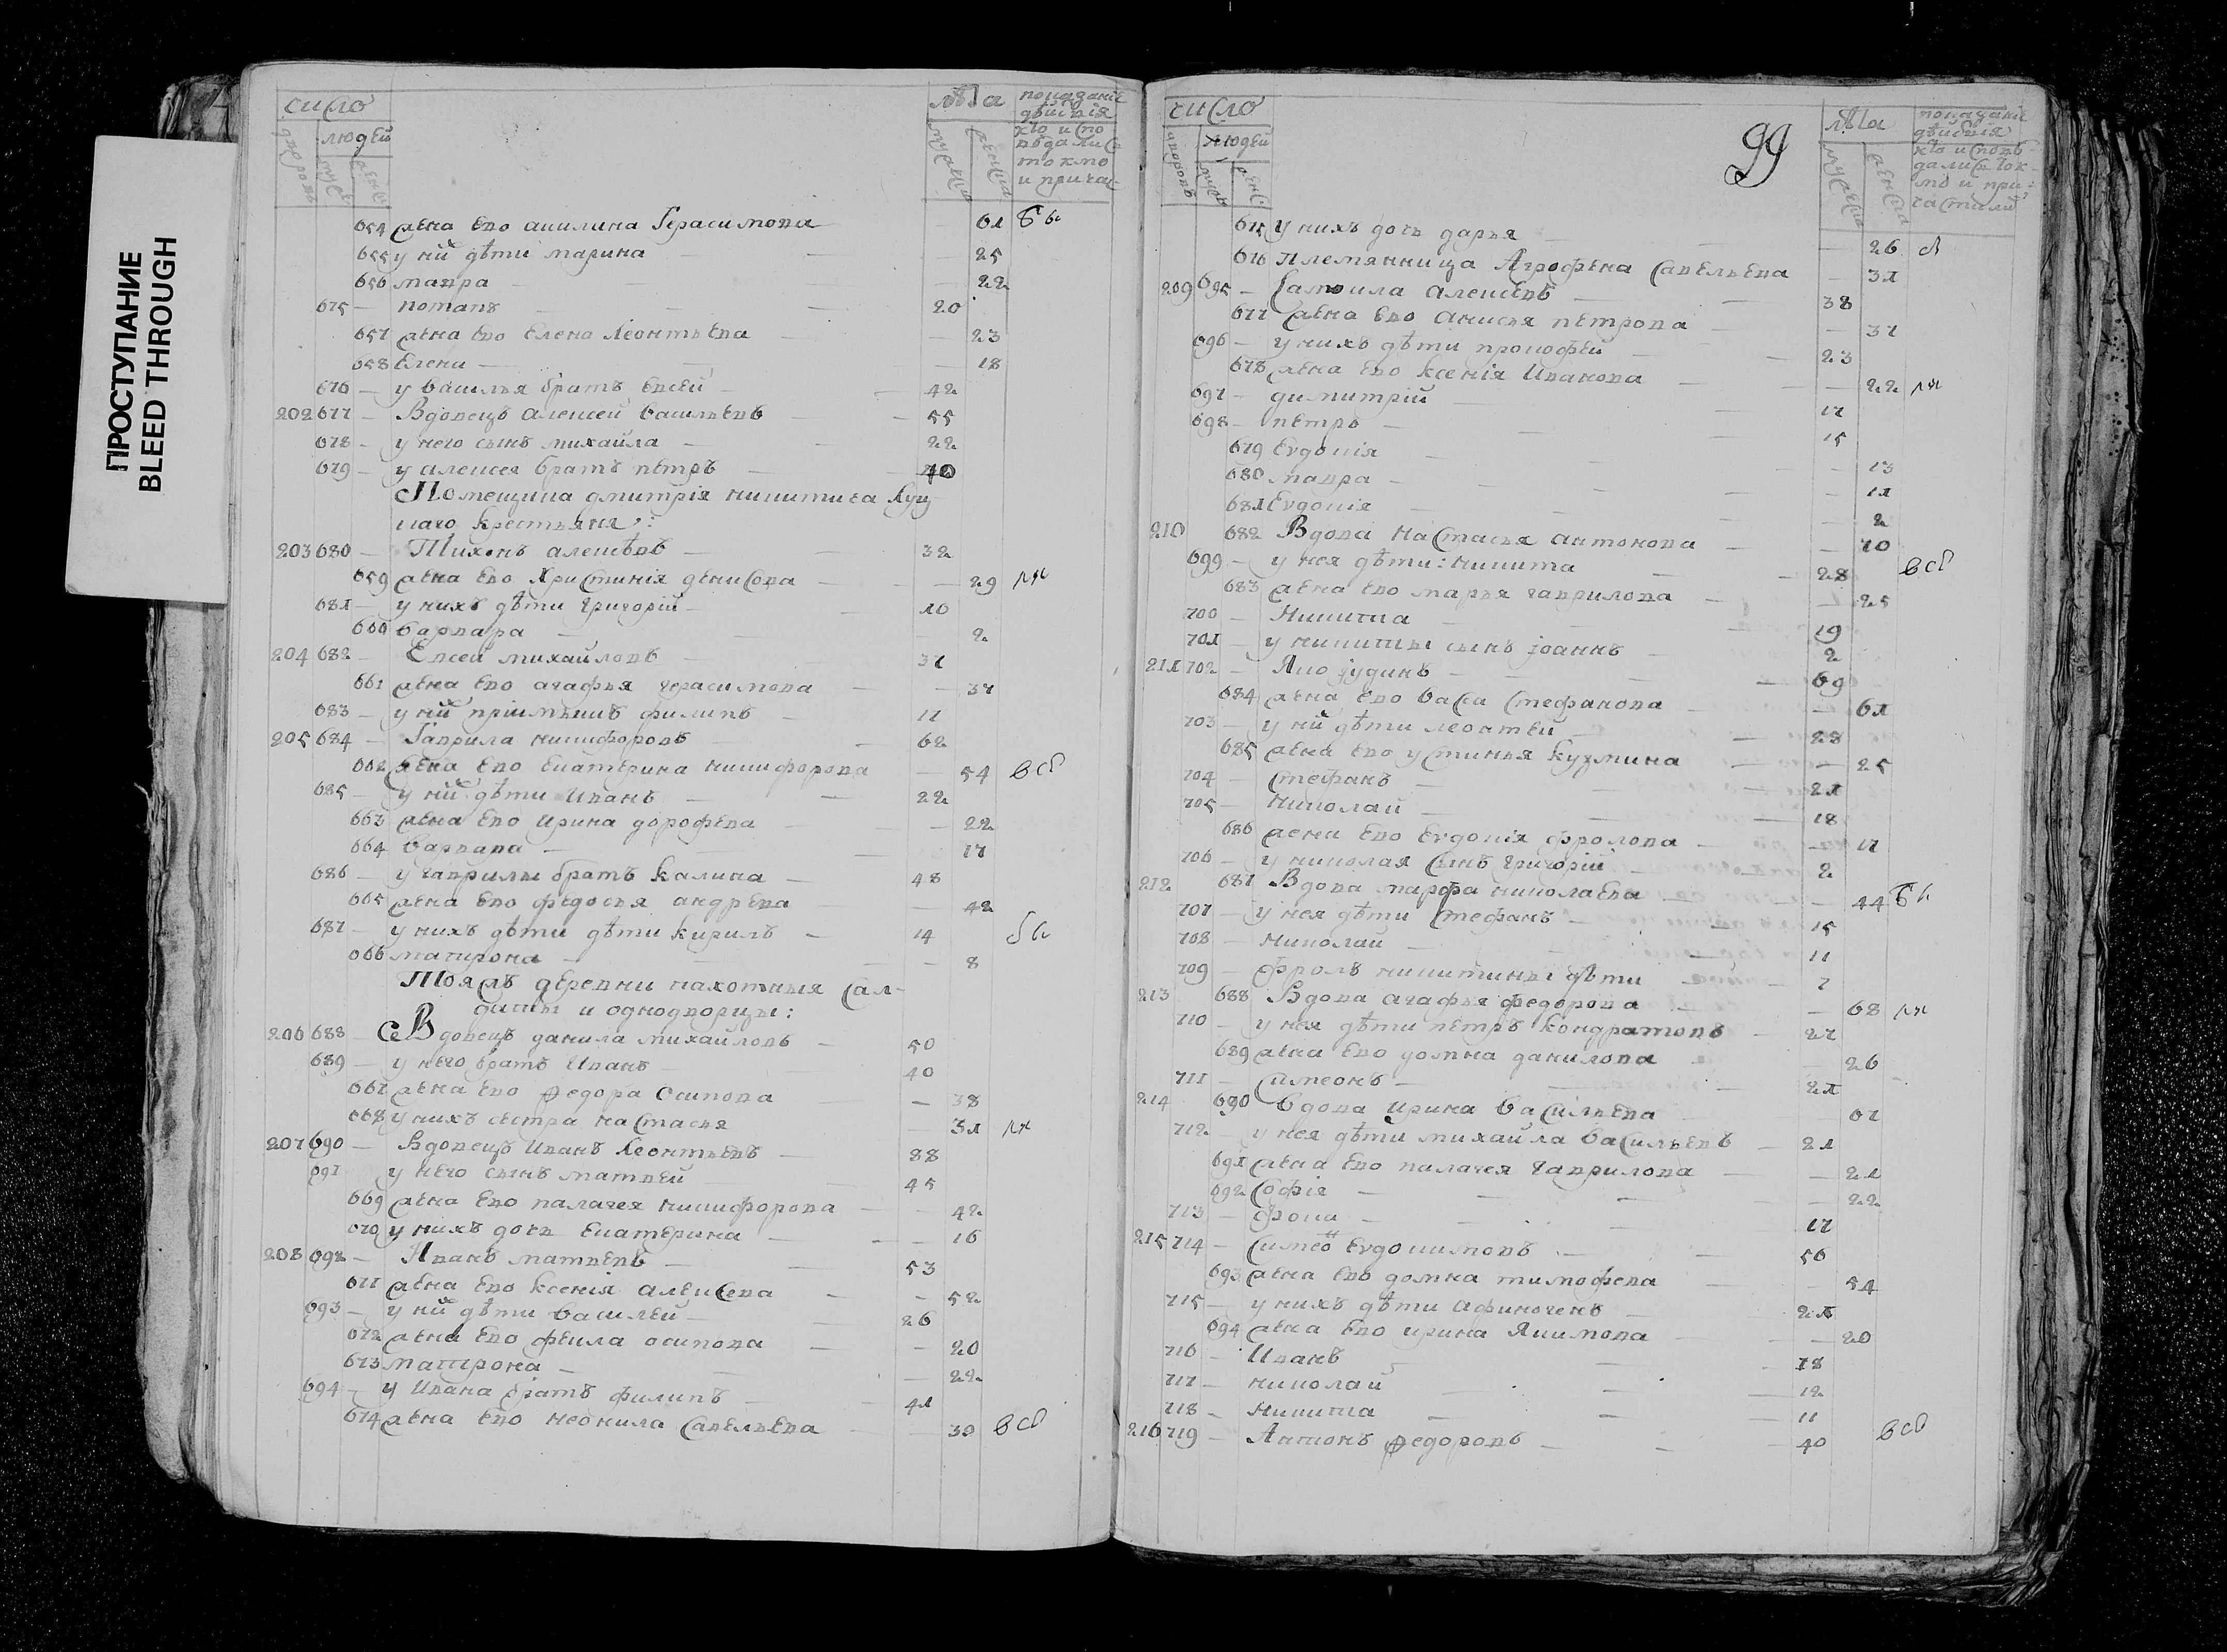 ПРОСТУПАНИЕ
BLEED THROUGH
число
лѣта
показаніе
дѣйствія
кто и спо
вѣдались
токмо
и причас
дворовъ
людей
муж
женс
мужеска
женска
654 жена ево акилина Герасимова — 61
655 у ниͯ дѣти марина — 25
656 мавра — 22
675 — потапъ — 20
657 жена ево Елена Леонтьева — 23
658 Елени — 18
676 — у василья братъ евсей — 42
202 677 — Вдовецъ алексей васильевъ — 55
678 — у него сынъ михайла — 22
679 — у алексея братъ петръ — 40
Помещика дмитрія никитича
каго крестьяня:
203 680 — Тихонъ алексѣевъ — 32
659 жена ево христинія денисова — 29
681 — у нихъ дѣти григорій — 10
660 варвара — 2
204 682 — Евсей михайловъ — 37
661 жена ево агафья герасимова — 37
683 — у ниͯ пріимышъ филипъ — 11
205 684 — Гаврила никифоровъ — 62
662 жена ево екатерина никифорова — 54
685 — у ниͯ дѣти иванъ — 22
663 жена ево ирина дорофеева — 22
664 варвара — 17
686 — у гаврилы братъ калина — 48
665 жена ево федосья андрѣева — 42
687 — у нихъ дѣти дѣти кирилъ — 14
666 матирона — 8
Тояжъ деревни пахотныя сал-
даты и однодворцы:
206 688 — Вдовецъ данила михайловъ — 50
689 — у него братъ иванъ — 40
667 жена ево федора осипова — 38
668 у нихъ сестра настасья — 31
207 690 — Вдовецъ иванъ леонтьевъ — 88
691 у него сынъ матвей — 45
669 жена ево палагея никифорова — 42
670 у нихъ дочь екатерина — 16
208 692 — Иванъ матвеевъ — 53
671 жена ево ксенія алексеева — 52
693 — у ниͯ дѣти василей — 26
672 жена ево фекла осипова — 20
673 матрона — 22
694 — у ивана братъ филипъ — 41
674 жена ево неонила савельева — 39
99
число
лѣта
показаніе
дѣйствія
кто и сповѣ
дались ток
мо и при:
частили
дворовъ
людей
муж
женс
мужеска
женска
675 у нихъ дочь дарья — 26
676 племянница Агрофена савельева — 31
209 695 — Самоила алексеевъ — 38
677 жена ево анисья петрова — 37
696 — у нихъ дѣти прокофей — 23
678 жена ево ксенія иванова — 22
697 — димитрій — 17
698 — петръ — 15
679 Евдокія — 13
680 мавра — 11
681 Евдокія — 2
210 682 Вдова настасья антонова — 70
699 — у нея дѣти: никита — 28
683 жена ево марья гаврилова — 25
700 — Никита — 19
701 — у никиты сынъ іоаннъ — 2
211 702 — Яко іудинъ — 69
684 жена ево васса стефанова — 61
703 — у ниͯ дѣти леонтей — 28
685 жена ево устинья кузмина — 25
704 — стефанъ — 21
705 — николай — 18
686 жена ево евдокія фролова — 17
706 — у николая сынъ григорій — 2
212 687 Вдова марфа николаева — 44
707 — у нея дѣти стефанъ — 15
708 — николай — 11
709 — фролъ никитины дѣти — 7
213 688 Вдова агафья федорова — 68
710 — у нея дѣти петръ кондратовъ — 27
689 жена ево домна данилова — 26
711 — симеонъ — 21
214 690 вдова ирина васильева — 67
712 — у нея дѣти михайла васильевъ — 21
691 жена ево палагея гаврилова — 21
692 софія — 22
713 — фока — 17
215 714 — симеонъ Евдокимовъ — 56
693 жена ево домна тимофеева — 54
715 — у нихъ дѣти афиногенъ — 21
694 жена ево ирина якимова — 20
716 — иванъ — 18
717 — николай — 12
718 — никита — 11
216 719 — Антонъ федоровъ — 40